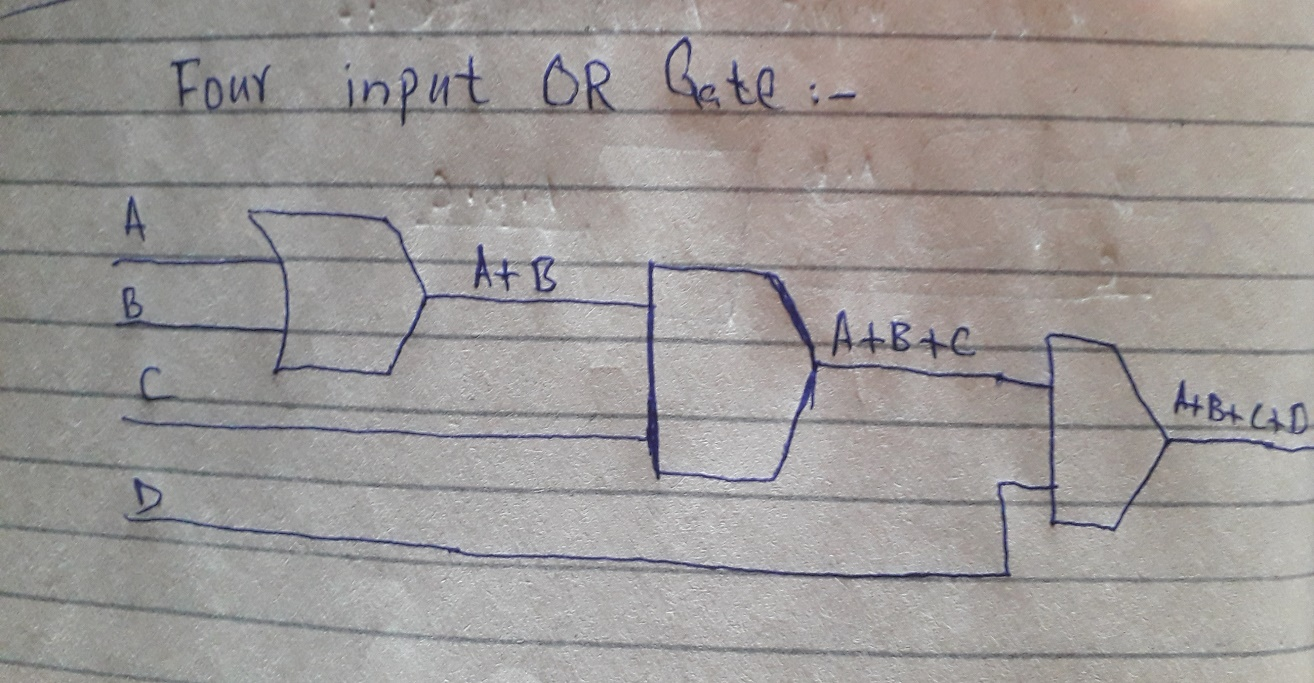 Four input OR Gate :-
A
A+B
B
A+B+C
C
A+B+C+D
D